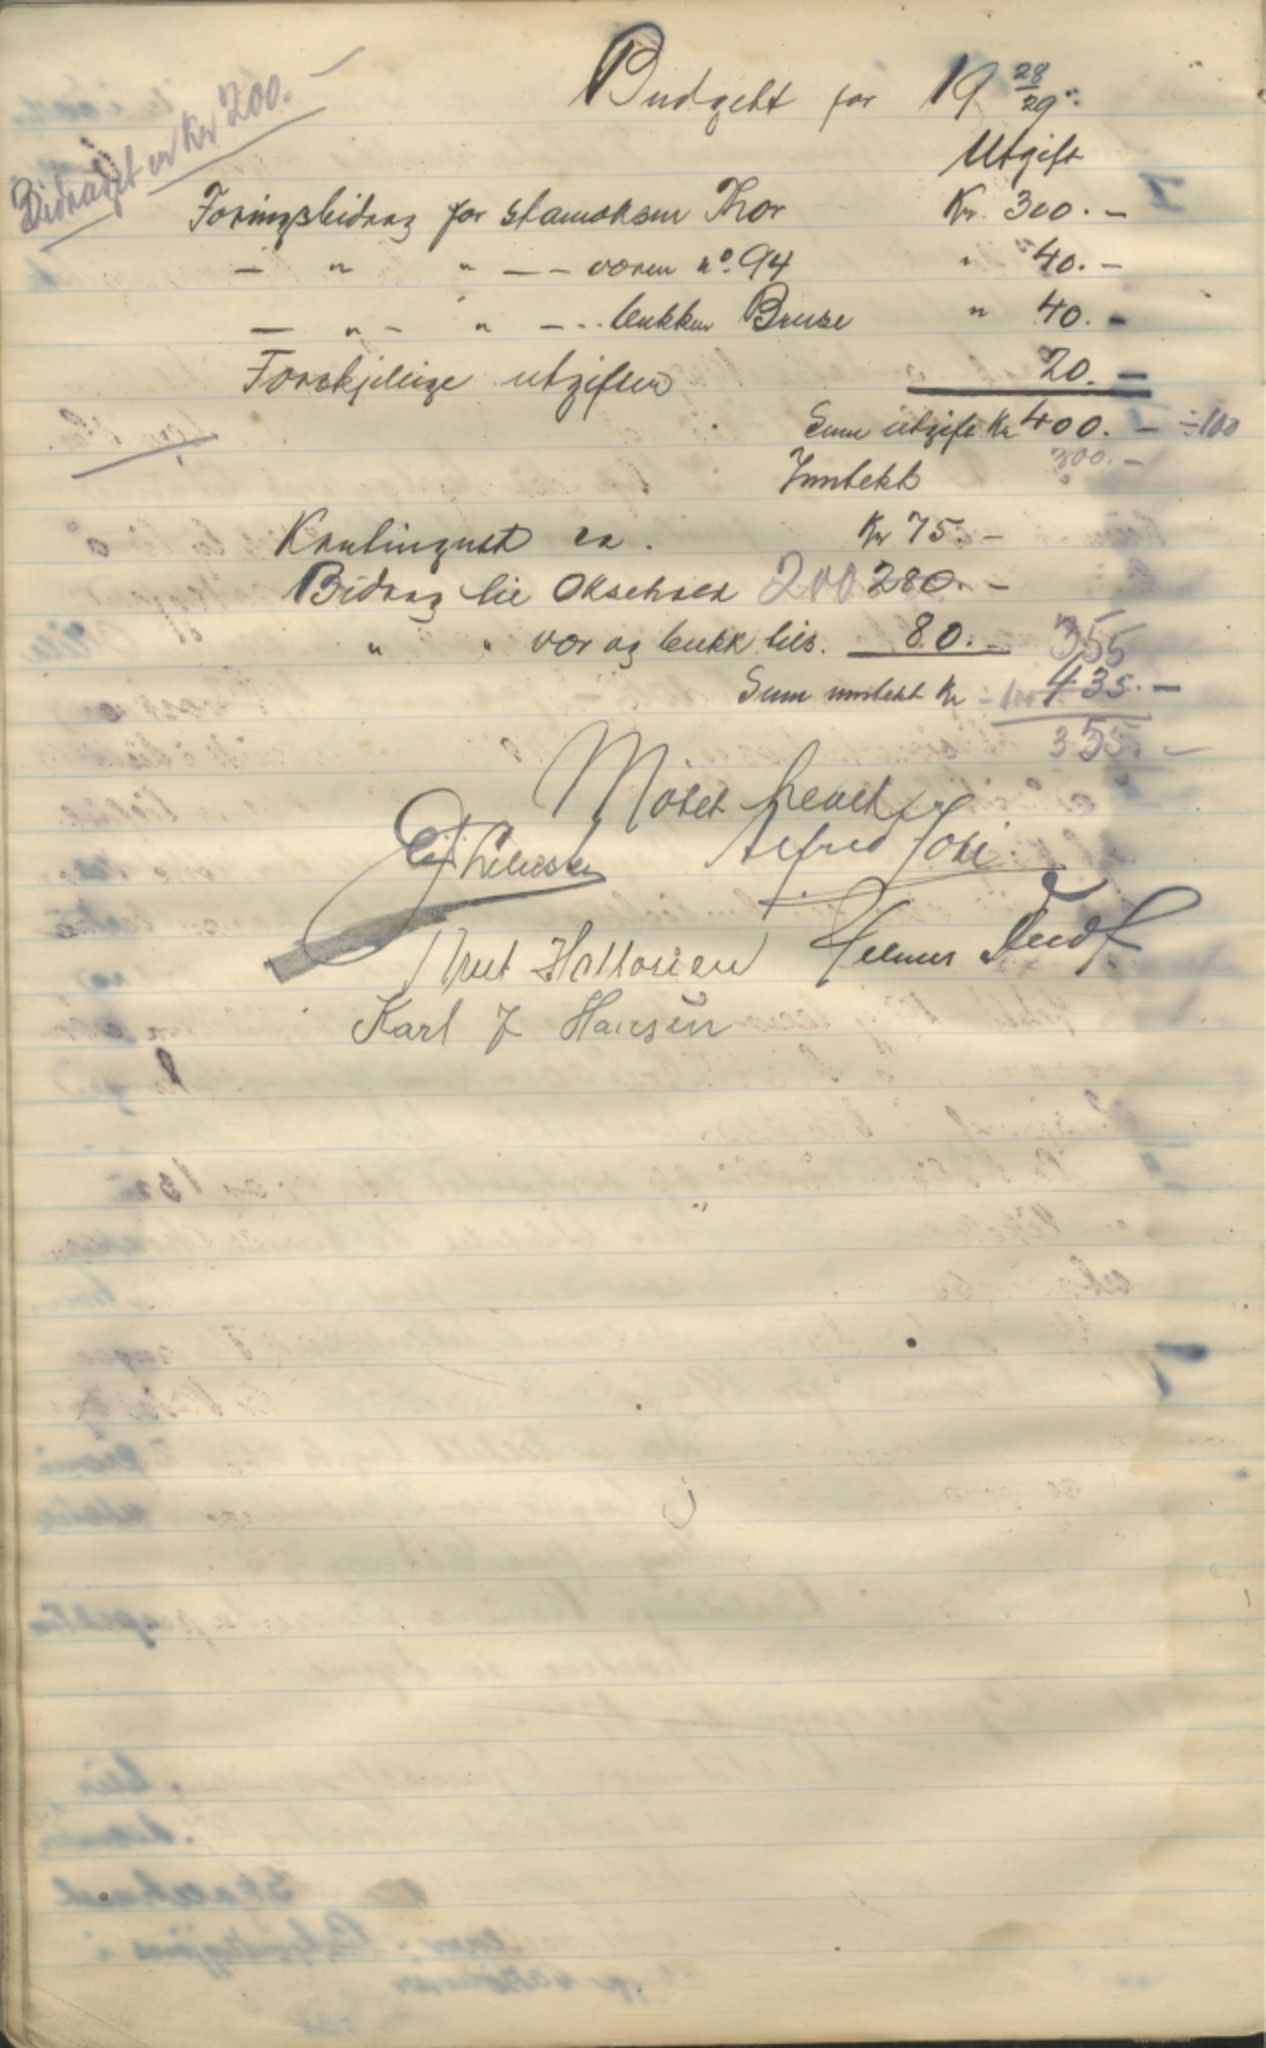 Budgett for 19 28/29
Bidraget er Kr 200.-
Utgift
Foringsbidrag for stamoksen Thor Kr. 300.-
- " " - - voren no. 94 " 40.-
- " - " - - bukken Bruse " 40.-
Forskjellige utgifter 20.-
Sum utgift Kr 400.- ÷100
300.-
Inntekt
Kontingent ca. Kr 75.-
Bidrag til oksehold 200 280.-
" " vær og bukk hils. 80.- 355
Sum inntekt Kr ÷ 100 435.-
355.-
Møtet hevet
Alfred Johs.
Knut Halvorsen
Karl J Hansen